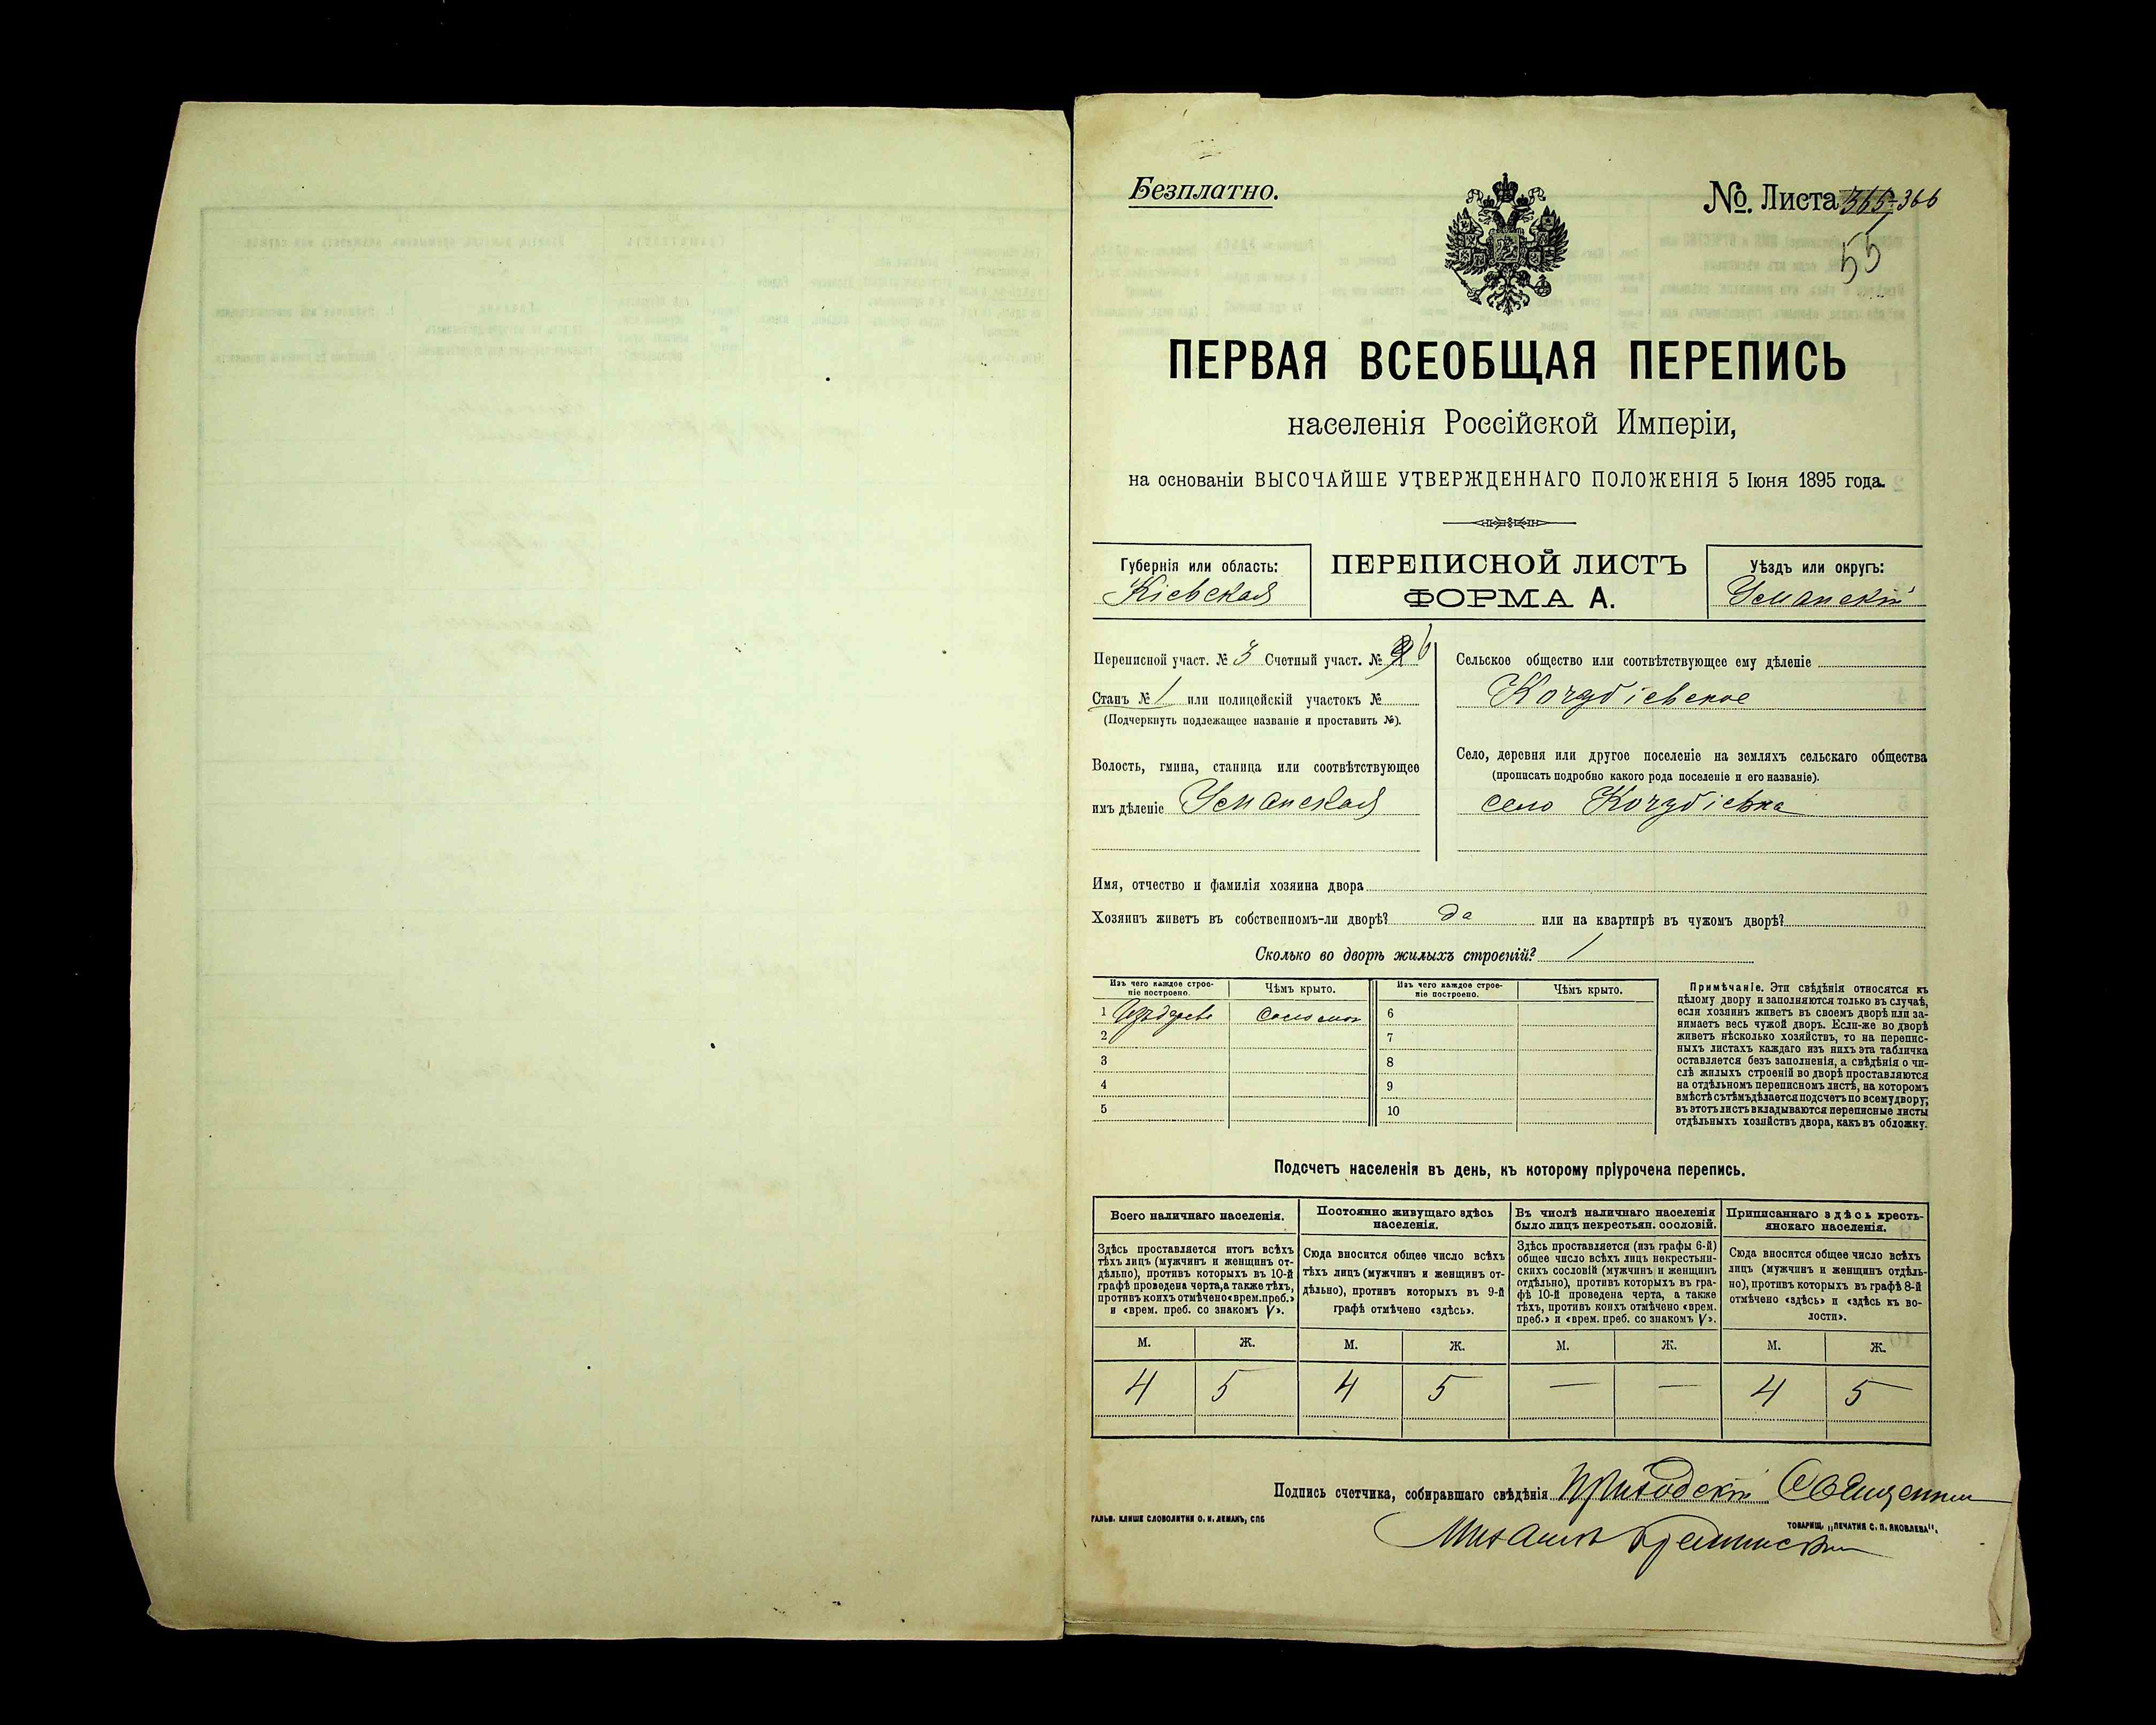 Безплатно.
№ Листа 365-366
55
ПЕРВАЯ ВСЕОБЩАЯ ПЕРЕПИСЬ
населенія Россійской Имперіи,
на основаніи ВЫСОЧАЙШЕ УТВЕРЖДЕННАГО ПОЛОЖЕНІЯ 5 Іюня 1895 года.
Губернія или область:
Кіевская
ПЕРЕПИСНОЙ ЛИСТЪ
ФОРМА А.
Уѣздъ или округъ:
Уманскій
Переписной участ. № 3 Счетный участ. № 6
Станъ № 1 или полицейскій участокъ №
(Подчеркнуть подлежащее названіе и проставить №).
Волость, гмина, станица или соотвѣтствующее
имъ дѣленіе Уманская
Сельское общество или соотвѣтствующее ему дѣленіе
Кочубіевское
Село, деревня или другое поселеніе на земляхъ сельскаго общества
(прописать подробно какого рода поселеніе и его названіе).
село Кочубіевка
Имя, отчество и фамилія хозяина двора
Хозяинъ живетъ въ собственномъ-ли дворѣ? да или на квартирѣ въ чужомъ дворѣ?
Сколько во дворѣ жилыхъ строеній? 1
Изъ чего каждое строе-
ніе построено.
Чѣмъ крыто.
Изъ чего каждое строе-
ніе построено.
Чѣмъ крыто.
1 Изъ дерева соломой 6
2 7
3 8
4 9
5 10
Примѣчаніе. Эти свѣдѣнія относятся къ
цѣлому двору и заполняются только въ случаѣ,
если хозяинъ живетъ въ своемъ дворѣ или за-
нимаетъ весь чужой дворъ. Если-же во дворѣ
живетъ нѣсколько хозяйствъ, то на перепис-
ныхъ листахъ каждаго изъ нихъ эта табличка
оставляется безъ заполненія, а свѣдѣнія о чи-
слѣ жилыхъ строеній во дворѣ проставляются
на отдѣльномъ переписномъ листѣ, на которомъ
вмѣстѣ съ тѣмъ дѣлается подсчетъ по всему двору;
въ этотъ листъ вкладываются переписные листы
отдѣльныхъ хозяйствъ двора, какъ въ обложку.
Подсчетъ населенія въ день, къ которому пріурочена перепись.
Всего наличнаго населенія.
Здѣсь проставляется итогъ всѣхъ
тѣхъ лицъ (мужчинъ и женщинъ от-
дѣльно), противъ которыхъ въ 10-й
графѣ проведена черта, а также тѣхъ,
противъ коихъ отмѣчено «врем. преб.»
и «врем. преб. со знакомъ V».
Постоянно живущаго здѣсь
населенія.
Сюда вносится общее число всѣхъ
тѣхъ лицъ (мужчинъ и женщинъ от-
дѣльно), противъ которыхъ въ 9-й
графѣ отмѣчено «здѣсь».
Въ числѣ наличнаго населенія
было лицъ некрестьян. сословій.
Здѣсь проставляется (изъ графы 6-й)
общее число всѣхъ лицъ некрестьян-
скихъ сословій (мужчинъ и женщинъ
отдѣльно), противъ которыхъ въ гра-
фѣ 10-й проведена черта, а также
тѣхъ, противъ коихъ отмѣчено «врем.
преб.» и «врем. преб. со знакомъ V».
Приписаннаго здѣсь кресть-
янскаго населенія.
Сюда вносится общее число всѣхъ
лицъ (мужчинъ и женщинъ отдѣль-
но), противъ которыхъ въ графѣ 8-й
отмѣчено «здѣсь» и «здѣсь къ во-
лости».
М. Ж. М. Ж. М. Ж. М. Ж.
4 5 4 5 — — 4 5
Подпись счетчика, собиравшаго свѣдѣнія Приходскій Священник
Михаилъ
ГАЛЬВ. КЛИШЕ СЛОВОЛИТНИ О. И. ЛЕМАНЪ, СПБ
ТОВАРИЩ. „ПЕЧАТНЯ С. П. ЯКОВЛЕВА".